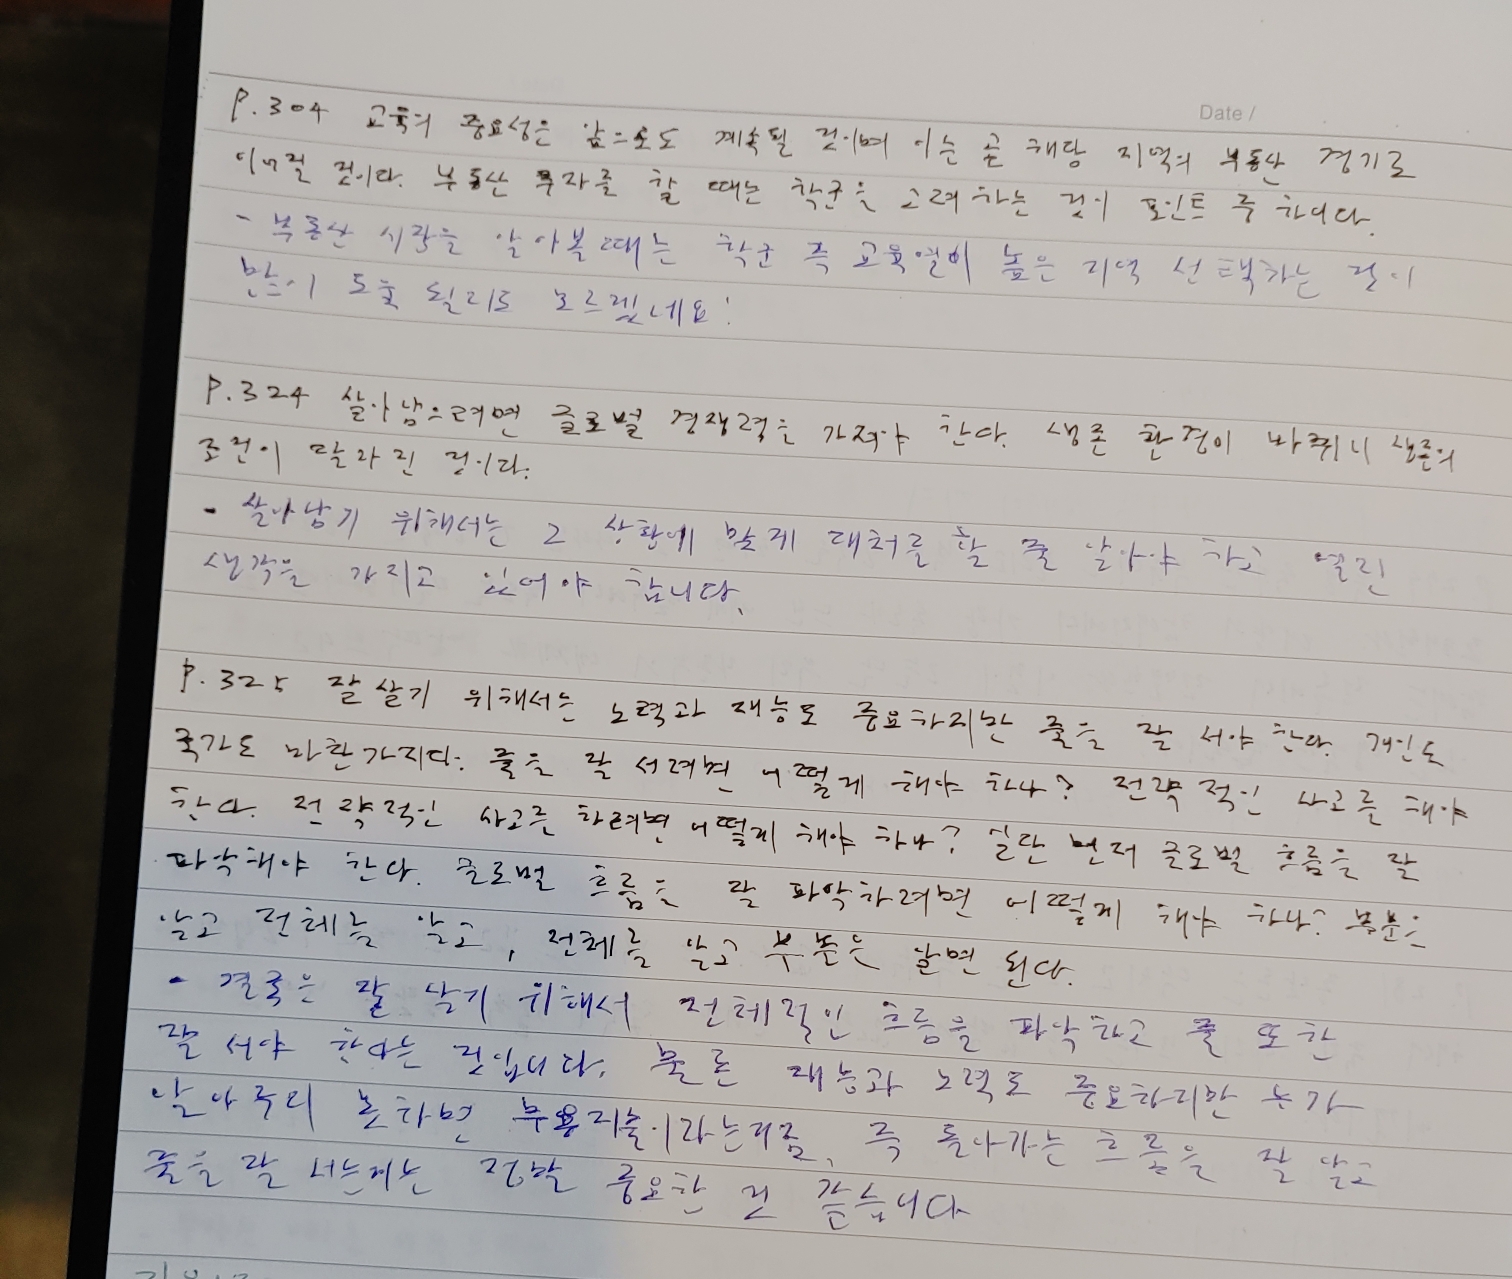 Date /
P.304 교육의 중요성은 앞으로도 계속될 것이며 이는 곧 해당 지역의 부동산 경기로
이어질 것이다. 부동산 투자를 할 때는 학군을 고려하는 것이 포인트 중 하나다.
- 부동산 시장을 알아볼때는 학군 즉 교육열이 높은 지역 선택하는 것이
많이 도움 될지도 모르겠네요!
P.324 살아남으려면 글로벌 경쟁력을 가져야 한다. 생존 환경이 바뀌니 생존의
조건이 달라진 것이다.
- 살아남기 위해서는 그 상황에 맞게 대처를 할 줄 알아야 하고 열린
생각을 가지고 있어야 합니다.
P.325 잘살기 위해서는 노력과 재능도 중요하지만 줄을 잘 서야 한다. 개인도
국가도 마찬가지다. 줄을 잘 서려면 어떻게 해야 하나? 전략적인 사고를 해야
한다. 전략적인 사고를 하려면 어떻게 해야 하나? 일단 먼저 글로벌 흐름을 잘
파악해야 한다. 글로벌 흐름을 잘 파악하려면 어떻게 해야 하나? 부분을
알고 전체를 알고, 전체를 알고 부분을 알면 된다.
- 결국은 잘 살기 위해서 전체적인 흐름을 파악하고 줄 또한
잘 서야 한다는 것입니다. 물론 재능과 노력도 중요하지만 누가
알아주지 못하면 무용지술이라는거죠, 즉 돌아가는 흐름을 잘 알고
줄을 잘 서는게는 정말 중요한 것 같습니다